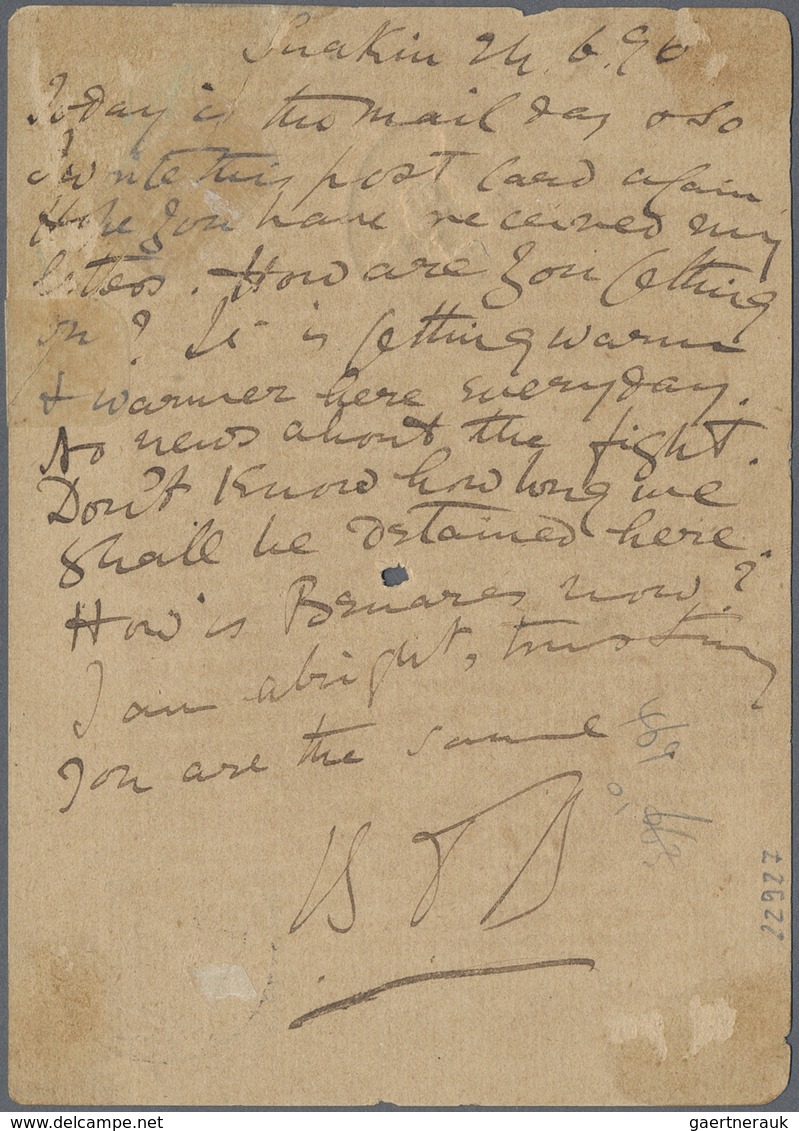 Suakin 24.6.96
Today is the mail day & so
I write this post card again
Hope you have received my
letters. How are you getting
on? It is getting warm
& warmer here everyday.
No news about the fight.
Don't know how long we
shall be detained here.
How is Benares now?
I am alright, trusting
you are the same
72627
delcampe.net
gaertnerauk